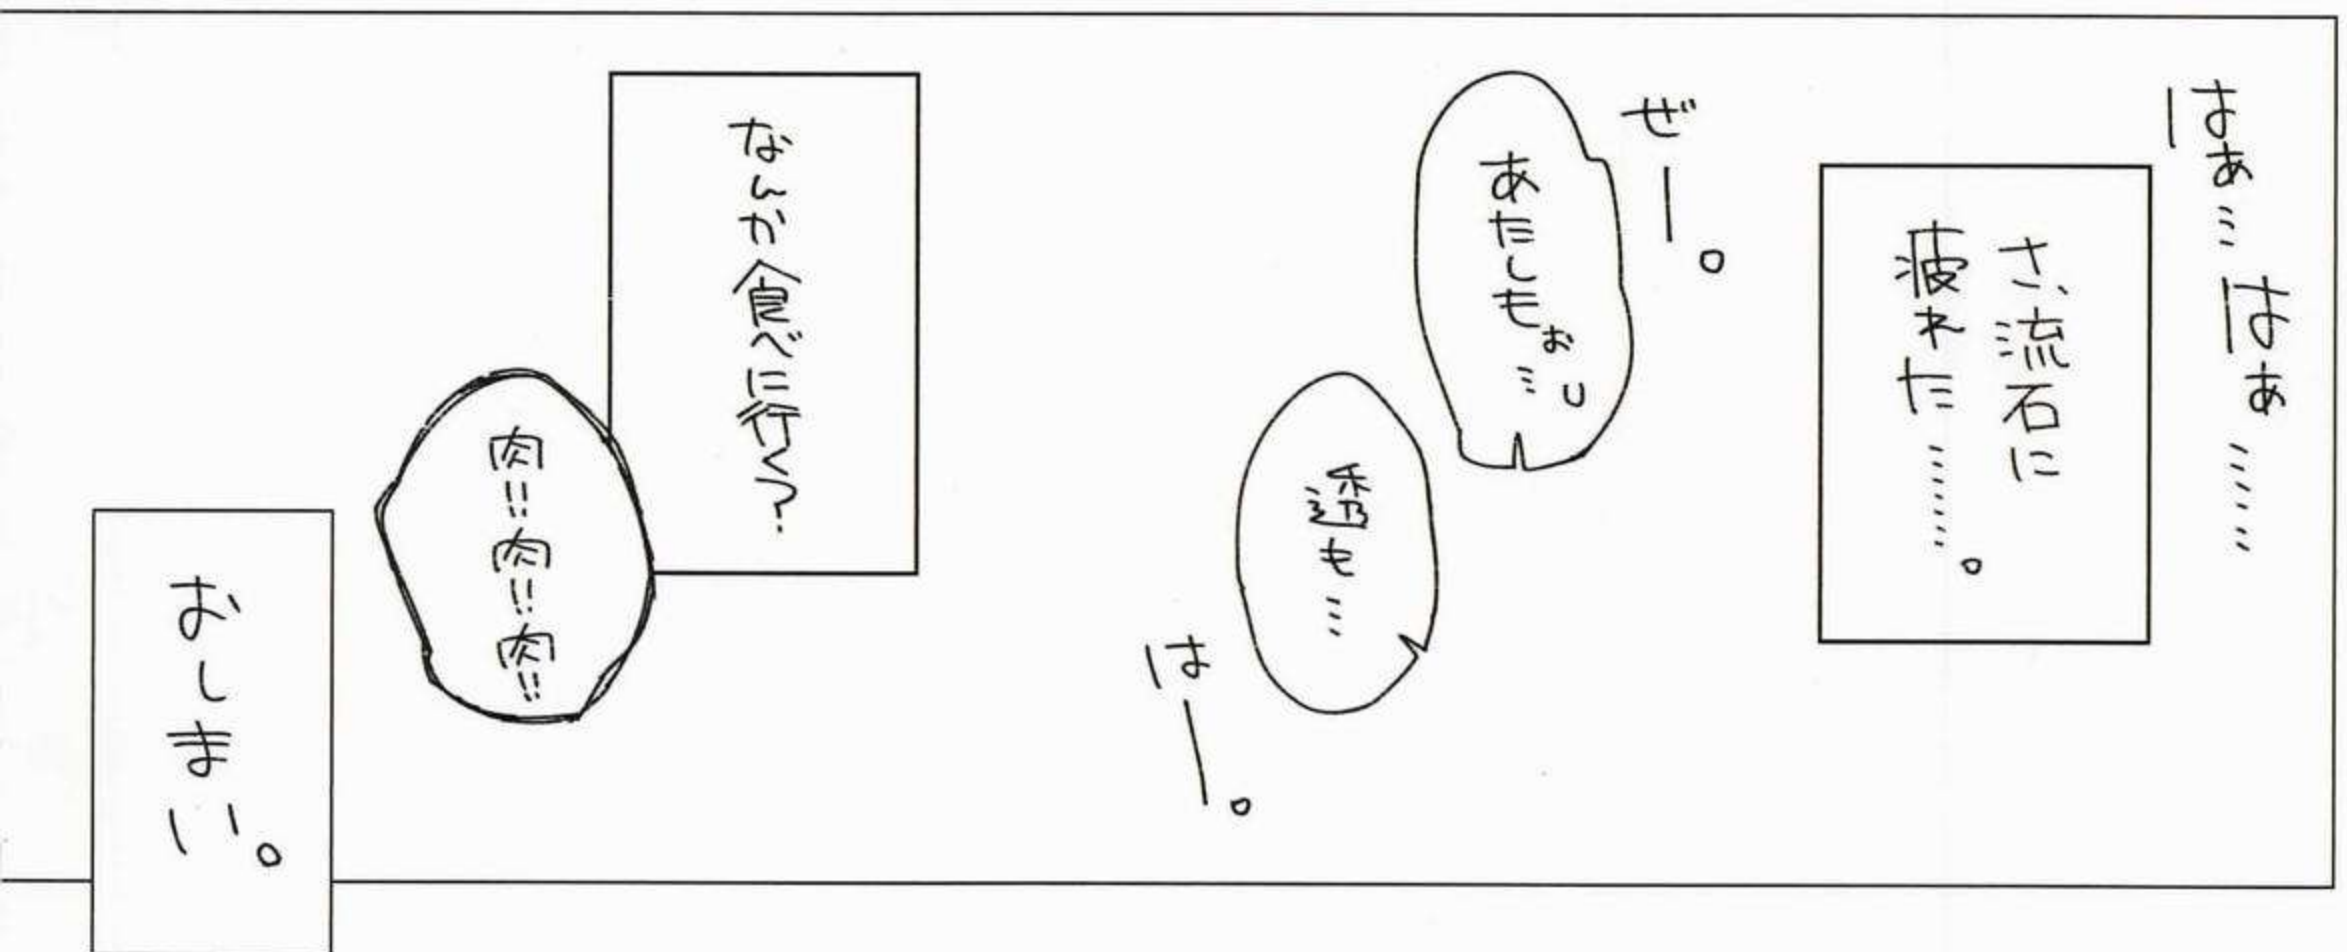 はぁ…はぁ……
さ、流石に
疲れた………。
ぜー。
あたしもぉ…
透も…
はー。
なんか食べに行く？
肉!!肉!!肉!!
おしまい。